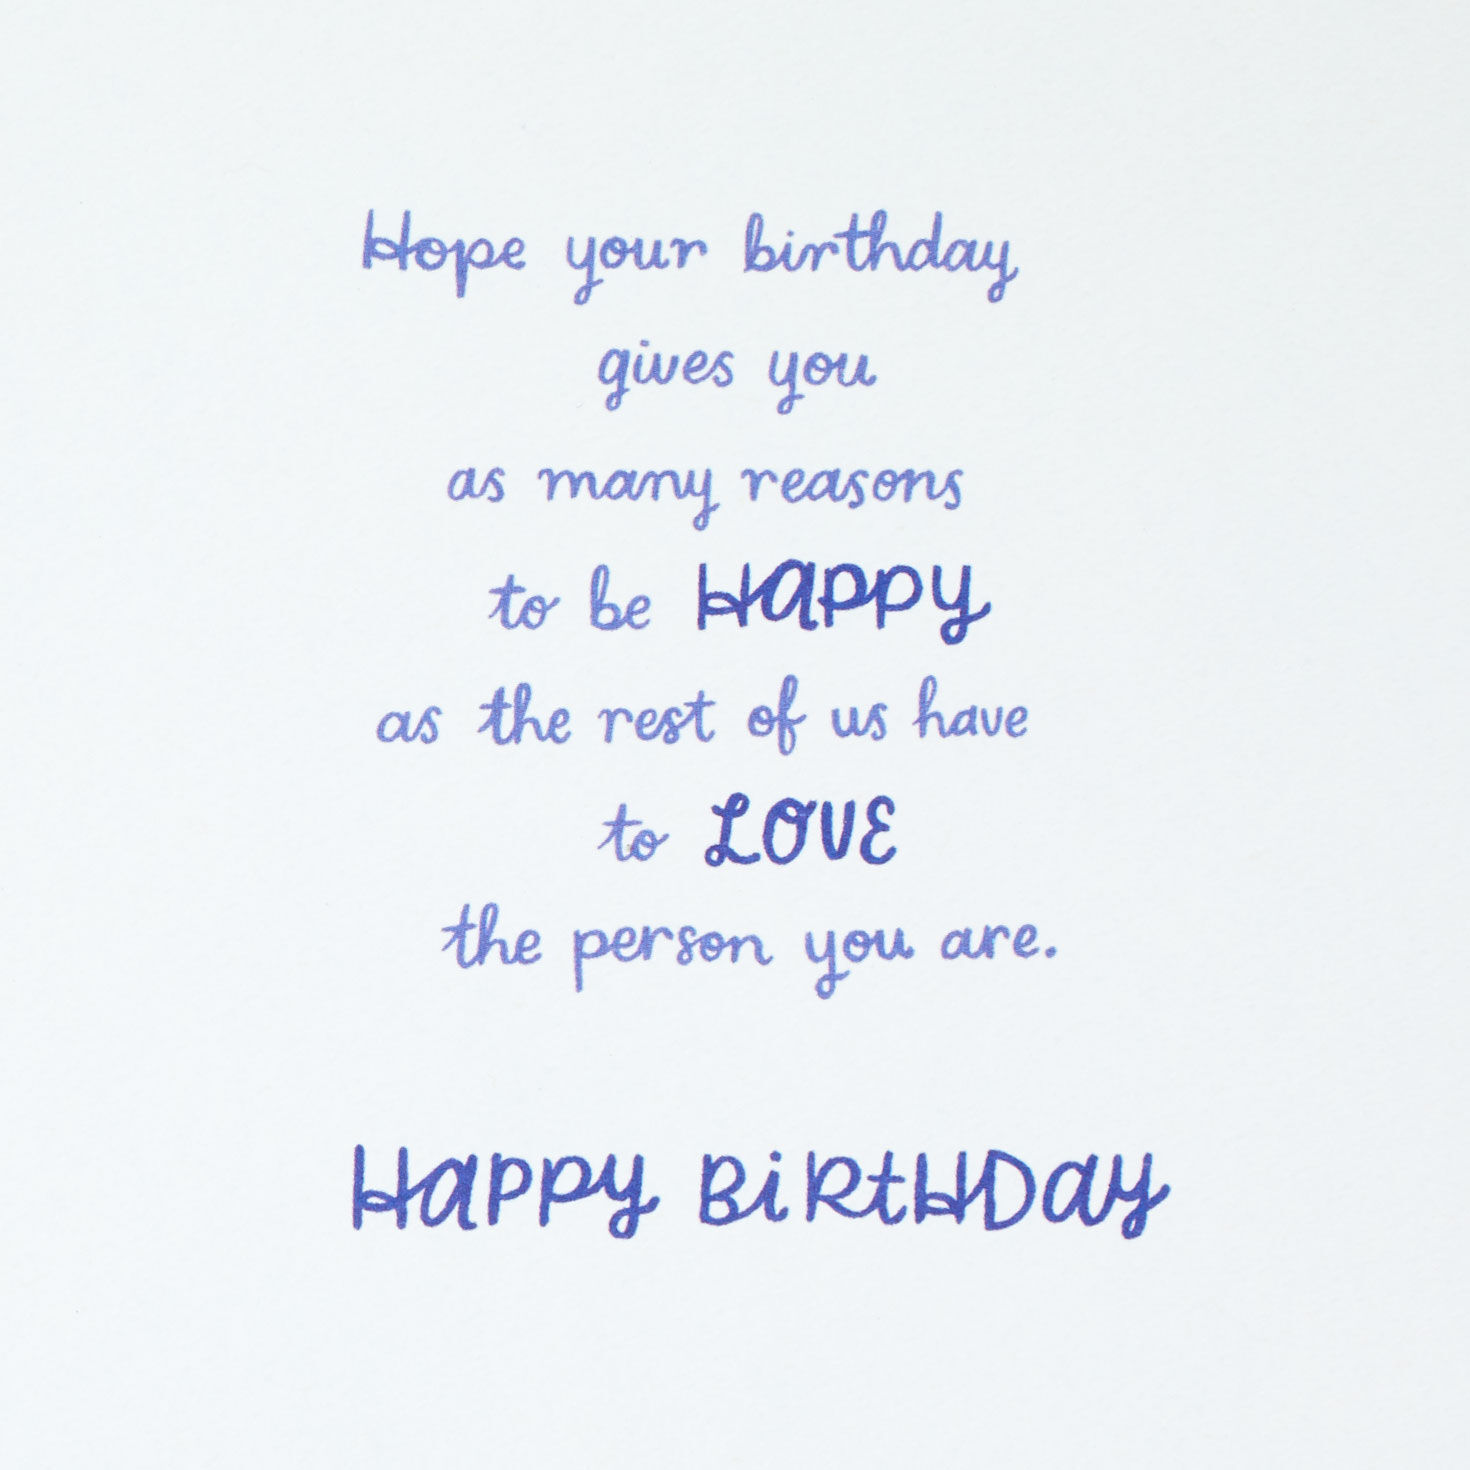 Hope your birthday
gives you
as many reasons
to be Happy
as the rest of us have
to LOVE
the person you are.
Happy BiRtHDay